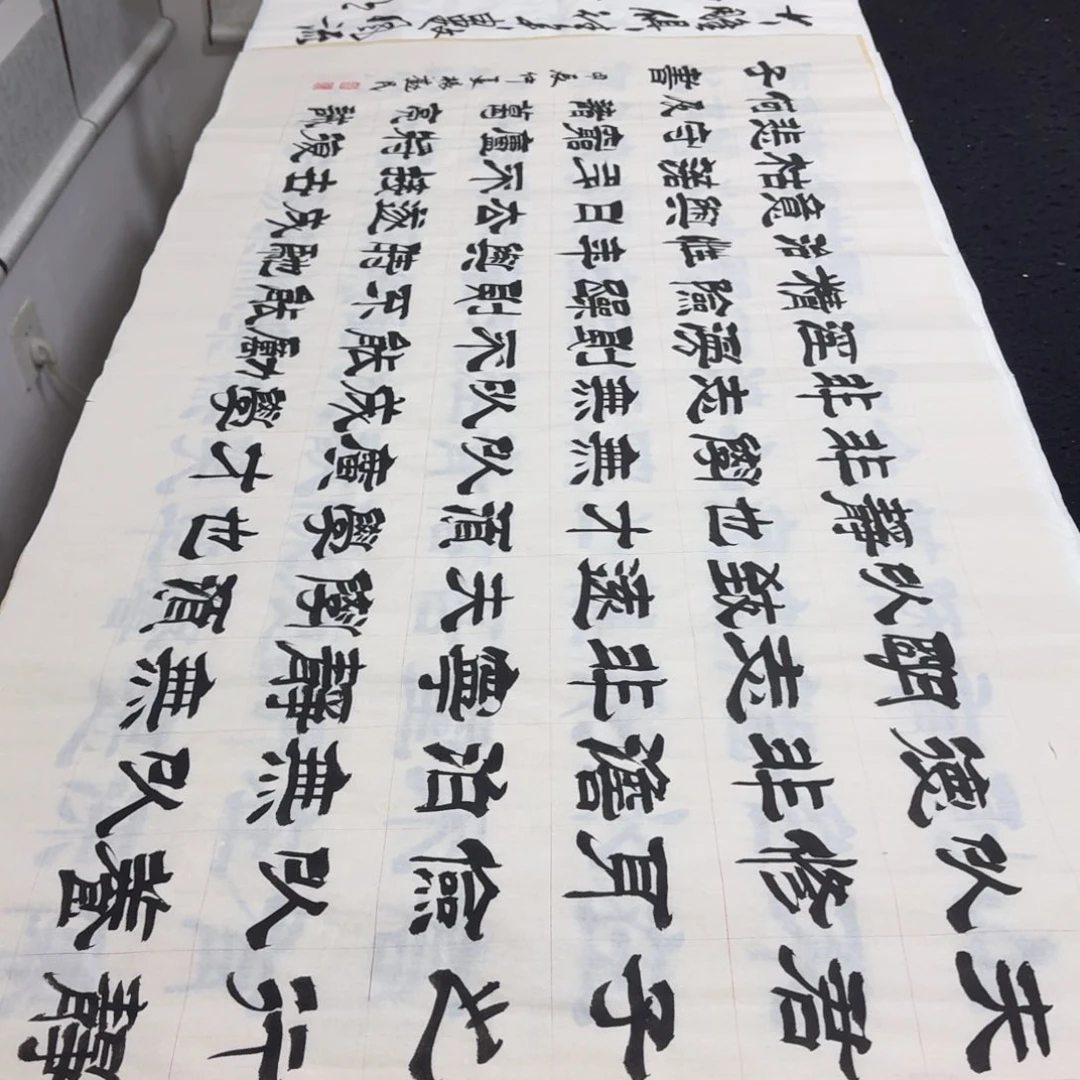 夫君子之行靜
以修身儉以養
德非澹泊無以
明志非寧靜無
以致遠夫學須
靜也才須學也
非學無以廣才
非志無以成學
淫慢則不能勵
精險躁則不能
治性年與時馳
意與日去遂成
枯落多不接世
悲守窮廬將復
何及諸葛亮誡
子書